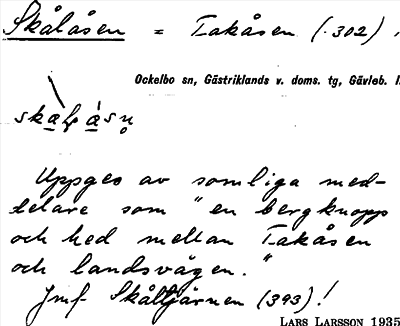 Skålåsen = Takåsen (302),
Ockelbo sn, Gästriklands v. doms. tg, Gävleb. l.
Uppges av somliga med-
delare som "en bergknopp
och hed mellan Takåsen
och landsvägen."
Jmf Skåltjärnen (393)!
LARS LARSSON 1935